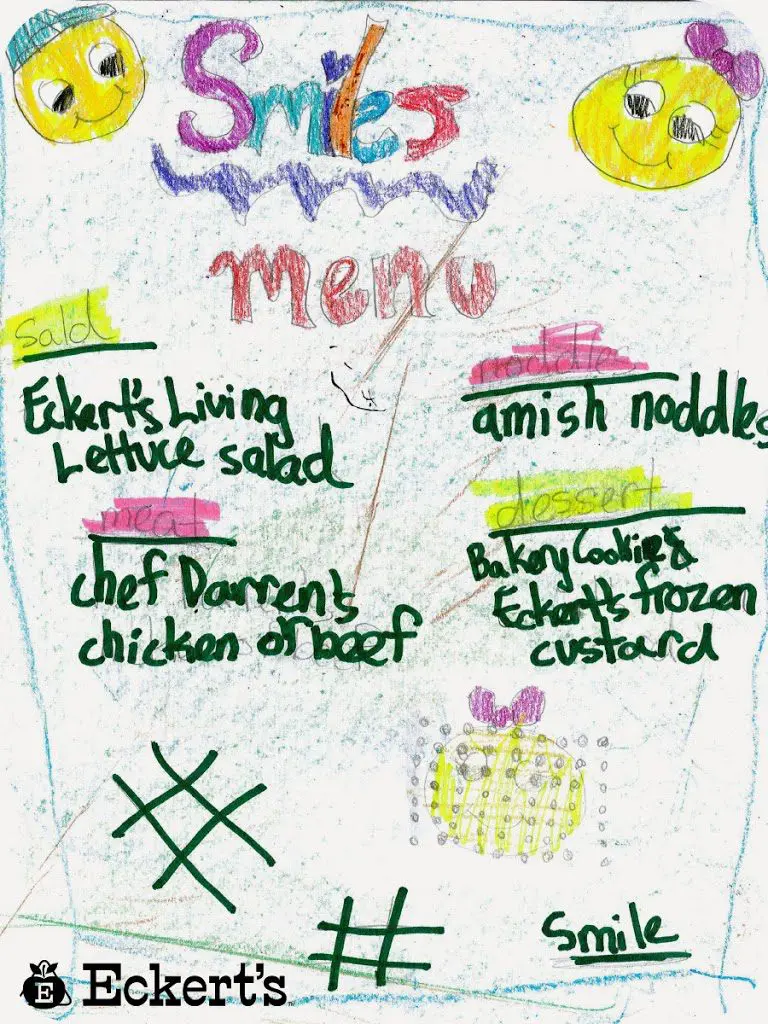 Smiles
menu
sald
Eckert's Living
Lettuce salad
noddles
amish noddles
meat
chef Darren's
chicken or beef
dessert
Bakery Cookie &
Eckert's frozen
custard
Smile
E Eckert's